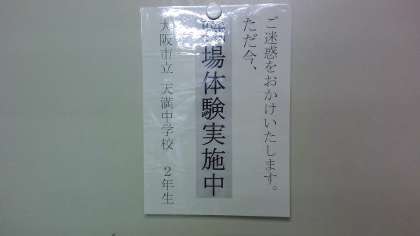 ご迷惑をおかけいたします。
ただ今、
職場体験実施中
大阪市立 天満中学校 2年生